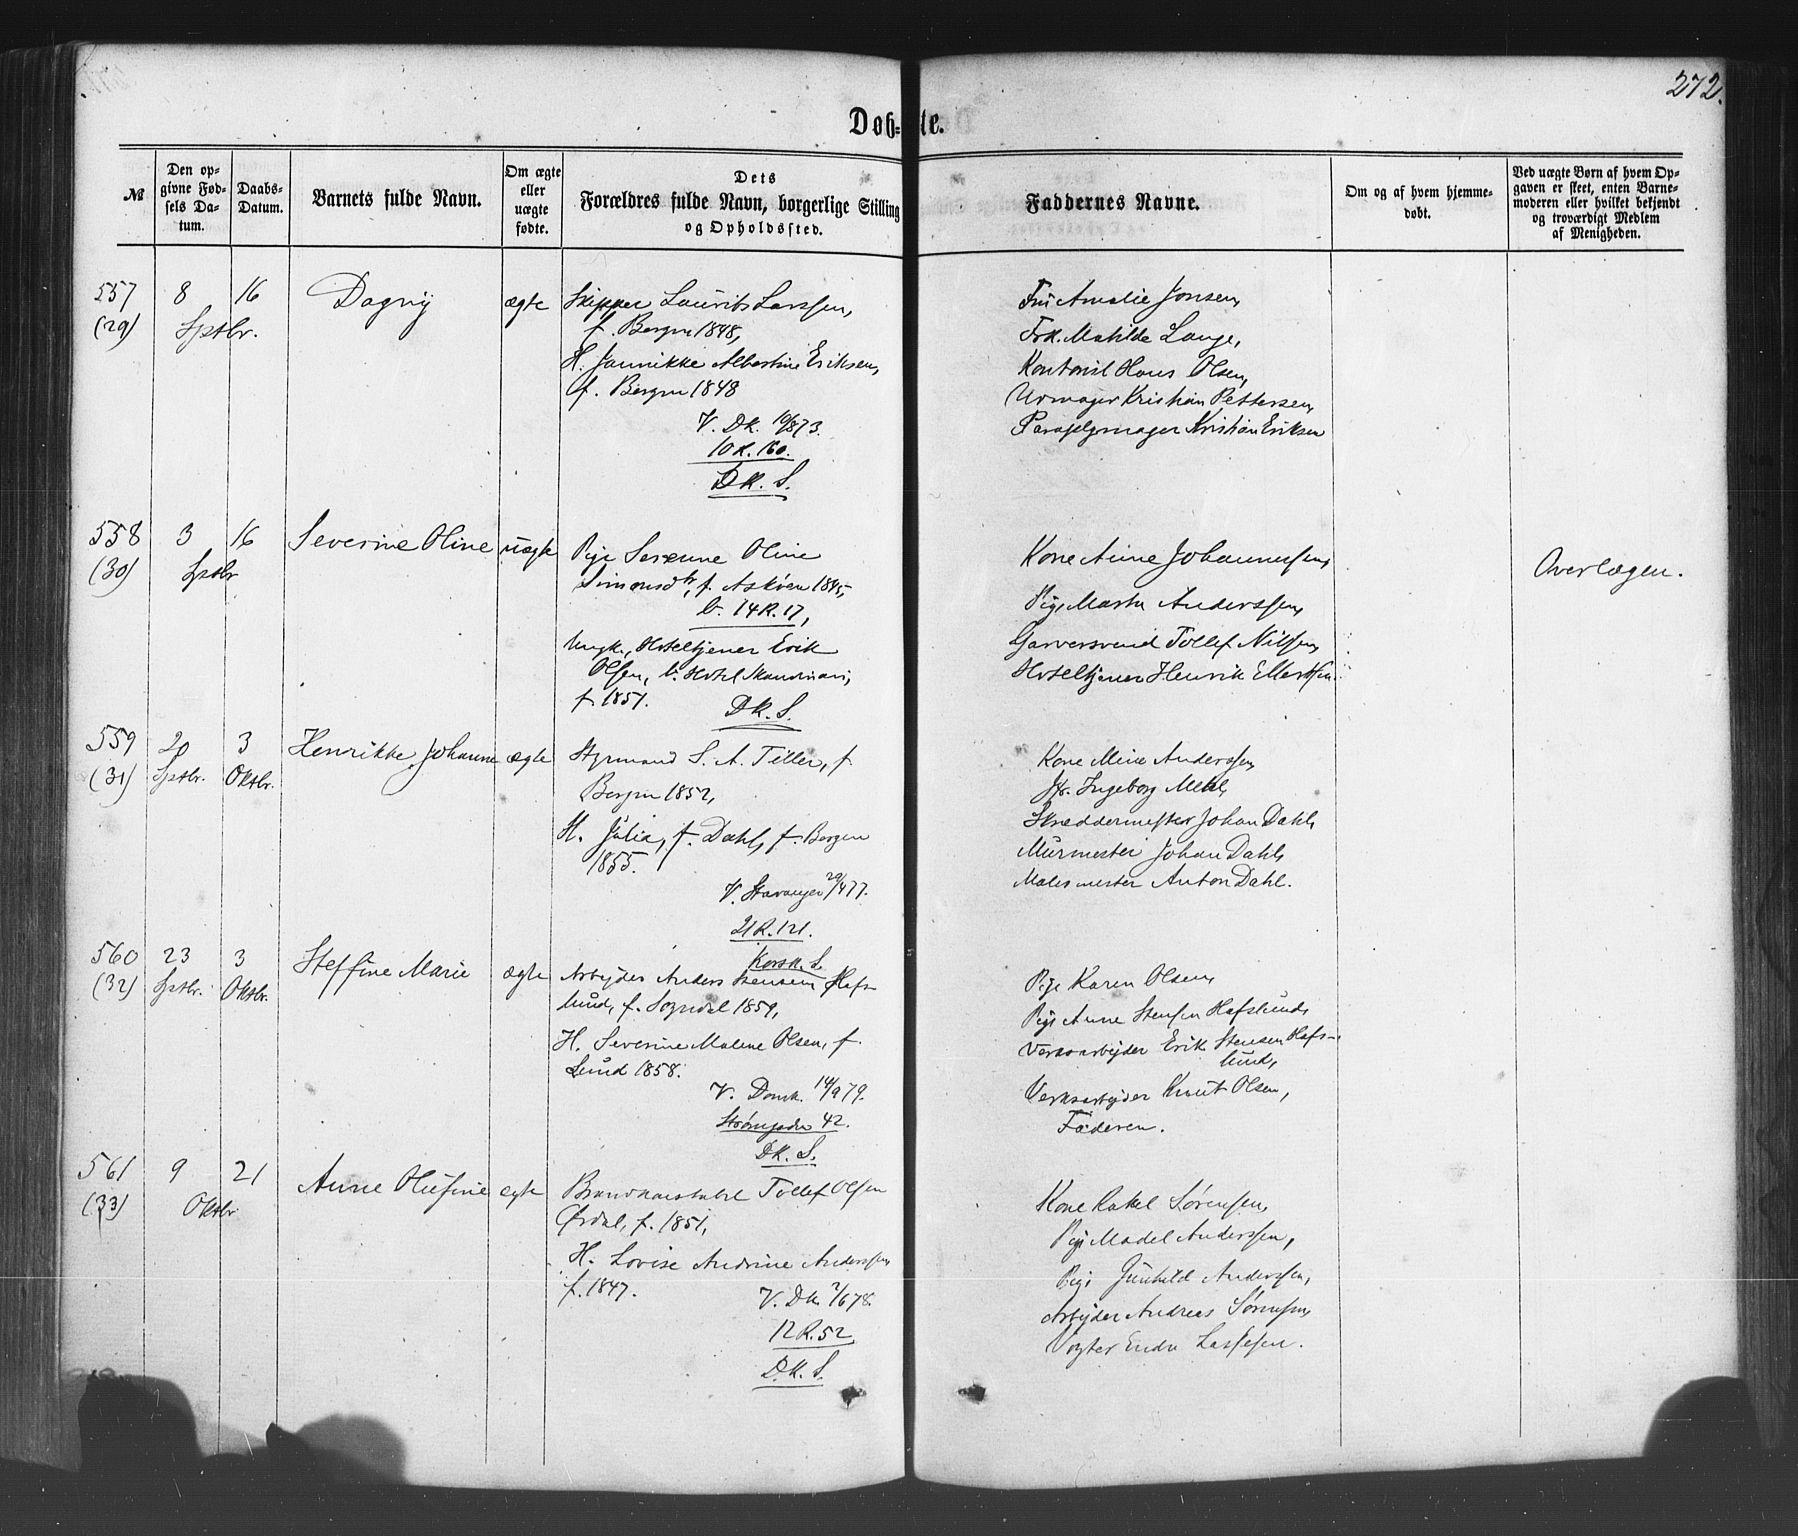 272.
Døb-te.
№
Den op-
givne Fød-
sels Da-
tum.
Daabs-
Datum.
Barnets fulde Navn.
Om ægte
eller
uægte
fødte.
Dets
Forældres fulde Navn, borgerlige Stilling
og Opholdssted.
Faddernes Navne.
Om og af hvem hjemme-
døbt.
Ved uægte Børn af hvem Op-
gaven er skeet, enten Barne-
moderen eller hvilket bekjendt
og troværdigt Medlem
af Menigheden.
557 8 16 Dagny ægte Skipper Laurits Larssen,
(29) Sptbr. f. Bergen 1848,
H. Jannikke Albertine Eriksen,
f. Bergen 1848
V. DK. 10/873.
10 R. 160.
DK. S.
Fru Amalie Jonsen,
Frk. Mathilde Lange,
Kontorist Hans Olsen,
Urmager Kristian Pettersen,
Paraplymager Kristian Eriksen
558 3 16 Severine Oline uægte Pige Serenne Oline
(30) Sptbr Simonsdtr, f. Askøen 1845,
b. 14 R. 17,
Ungk., Hoteltjener Erik
Olsen, b. Hotel Skandinavi,
f. 1851.
DK. S.
Kone Anne Johannessen,
Pige Marta Anderssen,
Garversvend Tollef Nilsen,
Hoteltjener Henrik Ellertsen.
Overlægen.
559 20 3 Henrikke Johanne ægte Styrmand S. A. Tiller, f.
(31) Sptbr. Oktbr. Bergen 1852,
H. Julia, f. Dahl, f. Bergen
1855.
V. Stavanger 29/477.
21 R. 121.
Korsk. S.
Kone Mine Anderssen,
Jfr. Ingeborg Mehl,
Skræddermester Johan Dahl,
Murmester Johan Dahl,
Malermester Anton Dahl.
560 23 3 Steffine Marie ægte Arbejder Anders Stensen Hafs-
(32) Sptbr. Oktbr. lund, f. Sogndal 1859,
H. Severine Malene Olsen, f.
Lund 1858.
V. Domk. 14/979.
Strømgaden 42.
DK. S.
Pige Karen Olsen,
Pige Anne Stensen Hafslund,
Verksarbejder Erik Stensen Hafs-
lund,
Verksarbejder Knut Olsen,
Faderen.
561 9 21 Anne Olufine ægte Brandkonstabel Tollef Olsen
(33) Oktbr Ørdal, f. 1851,
H. Lovise Andrine Anderssen,
f. 1847.
V. DK. 2/678.
12 R. 52
D.K. S.
Kone Rakel Sørensen,
Pige Madel Anderssen,
Pige Gunhild Anderssen,
Arbejder Andreas Sørensen,
Vogter Endre Lassesen.